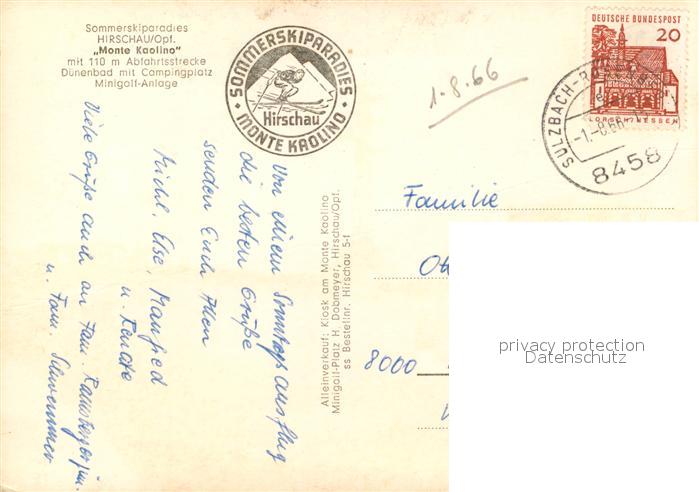 Sommerskiparadies
HIRSCHAU/Opf.
„Monte Kaolino"
mit 110 m Abfahrtsstrecke
Dünenbad mit Campingplatz
Minigolf-Anlage
· SOMMERSKIPARADIES ·
Hirschau
MONTE KAOLINO
1.8.66
DEUTSCHE BUNDESPOST
20
LORSCH/HESSEN
SULZBACH-RO
-1.-8.66
8458
Von einem Sonntagsausflug
die besten Grüße
senden Euch Allen
Michl, Else, Manfred
u. Renate
Viele Grüße auch an Fam.
u. Fam. Schwemmer
Alleinverkauf: Kiosk am Monte Kaolino
Minigolf-Platz H. Dobmeyer, Hirschau/Opf.
ss Bestellnr. Hirschau 5-f
Familie
8000
privacy protection
Datenschutz